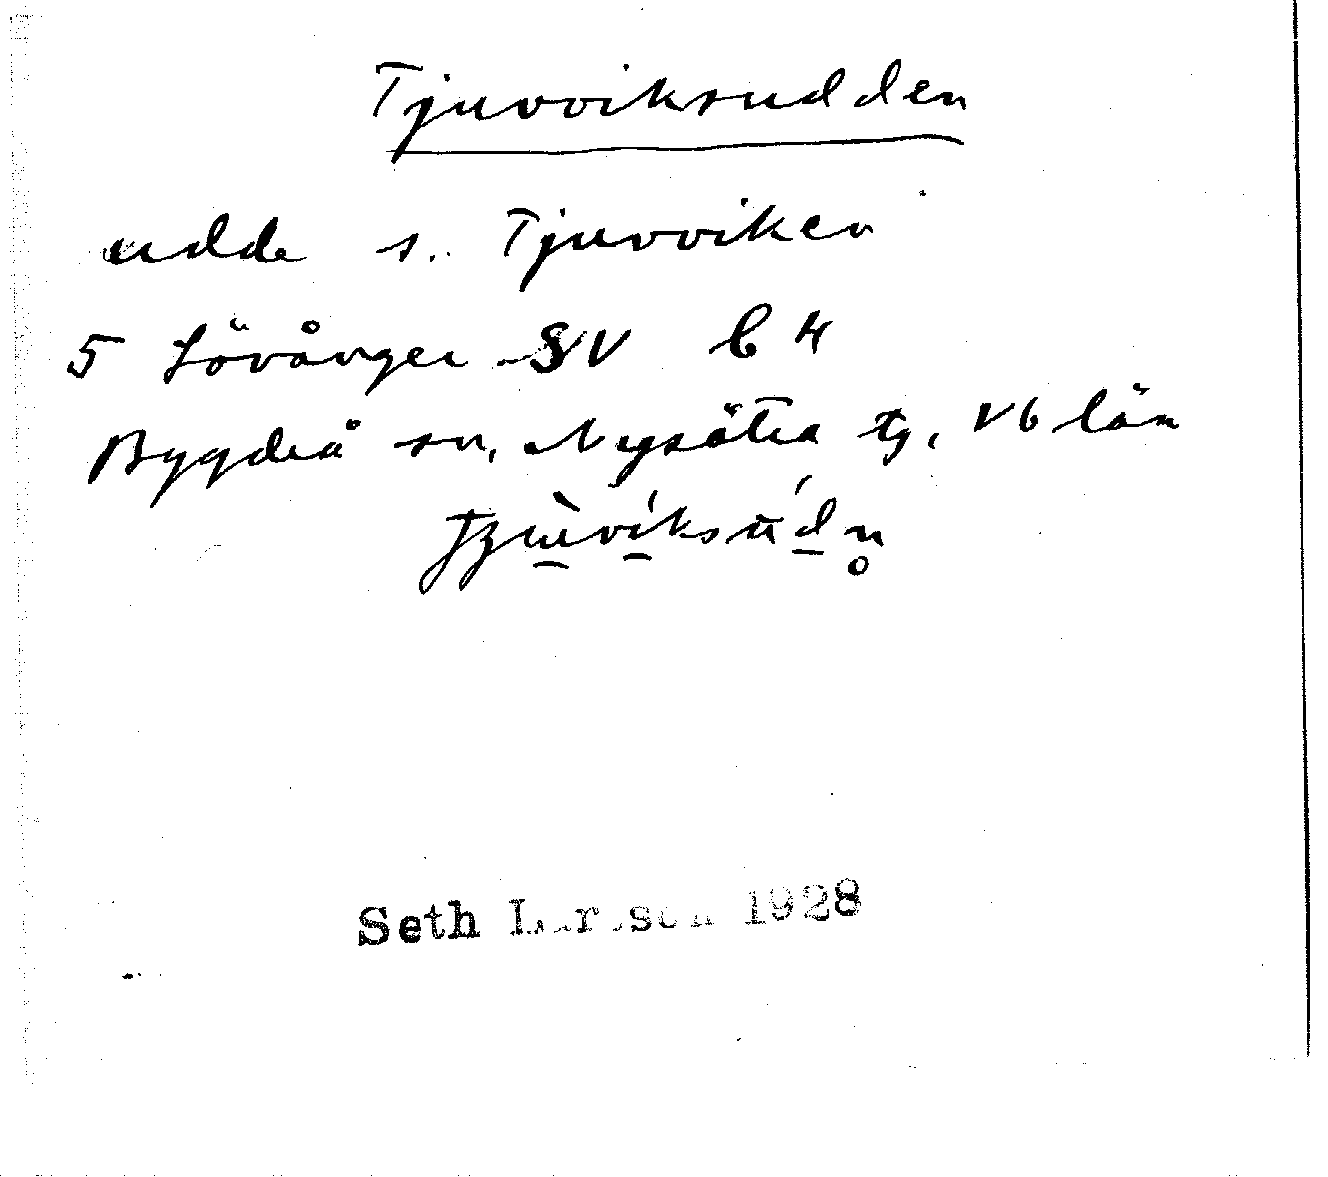 Tjuvviksudden
udde s. Tjuvviken
5 Lövånger SV b 4
Bygdeå sn, Nysätra tg, Vb län
Seth Larsson 1928